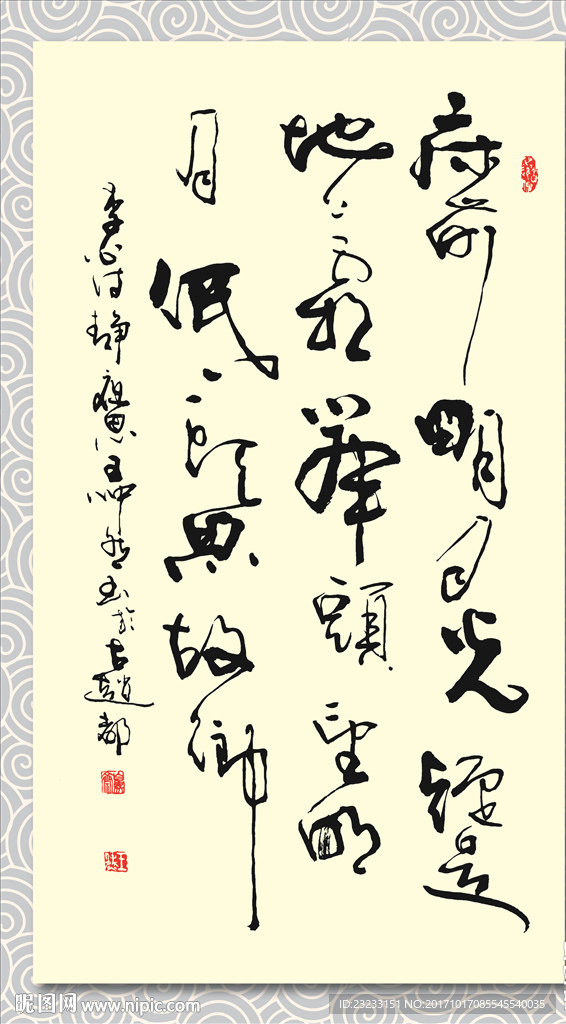 床前明月光疑是
地上霜舉頭望明
月低頭思故鄉
李白诗静夜思王书於古趙都
昵图网 www.nipic.com
ID:23233151 NO:20171017085545540035